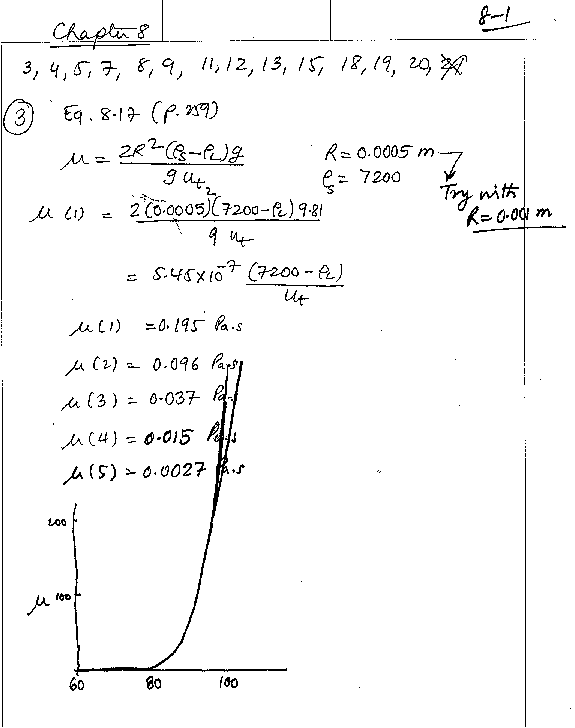 8-1
Chapter 8
3, 4, 5, 7, 8, 9, 11, 12, 13, 15, 18, 19, 20,
③ Eq. 8.17 (p. 259)
μ = 2R²(ρs-ρL)g / 9 ut
R = 0.0005 m
ρs = 7200
Try with
R = 0.001 m
μ (1) = 2(0.0005)²(7200-ρL) 9.81 / 9 ut
= 5.45×10⁻⁷ (7200-ρL) / ut
μ(1) = 0.195 Pa.s
μ(2) = 0.096 Pa.s
μ(3) = 0.037 Pa.s
μ(4) = 0.015 Pa.s
μ(5) = 0.0027 Pa.s
200
μ 100
60 80 100